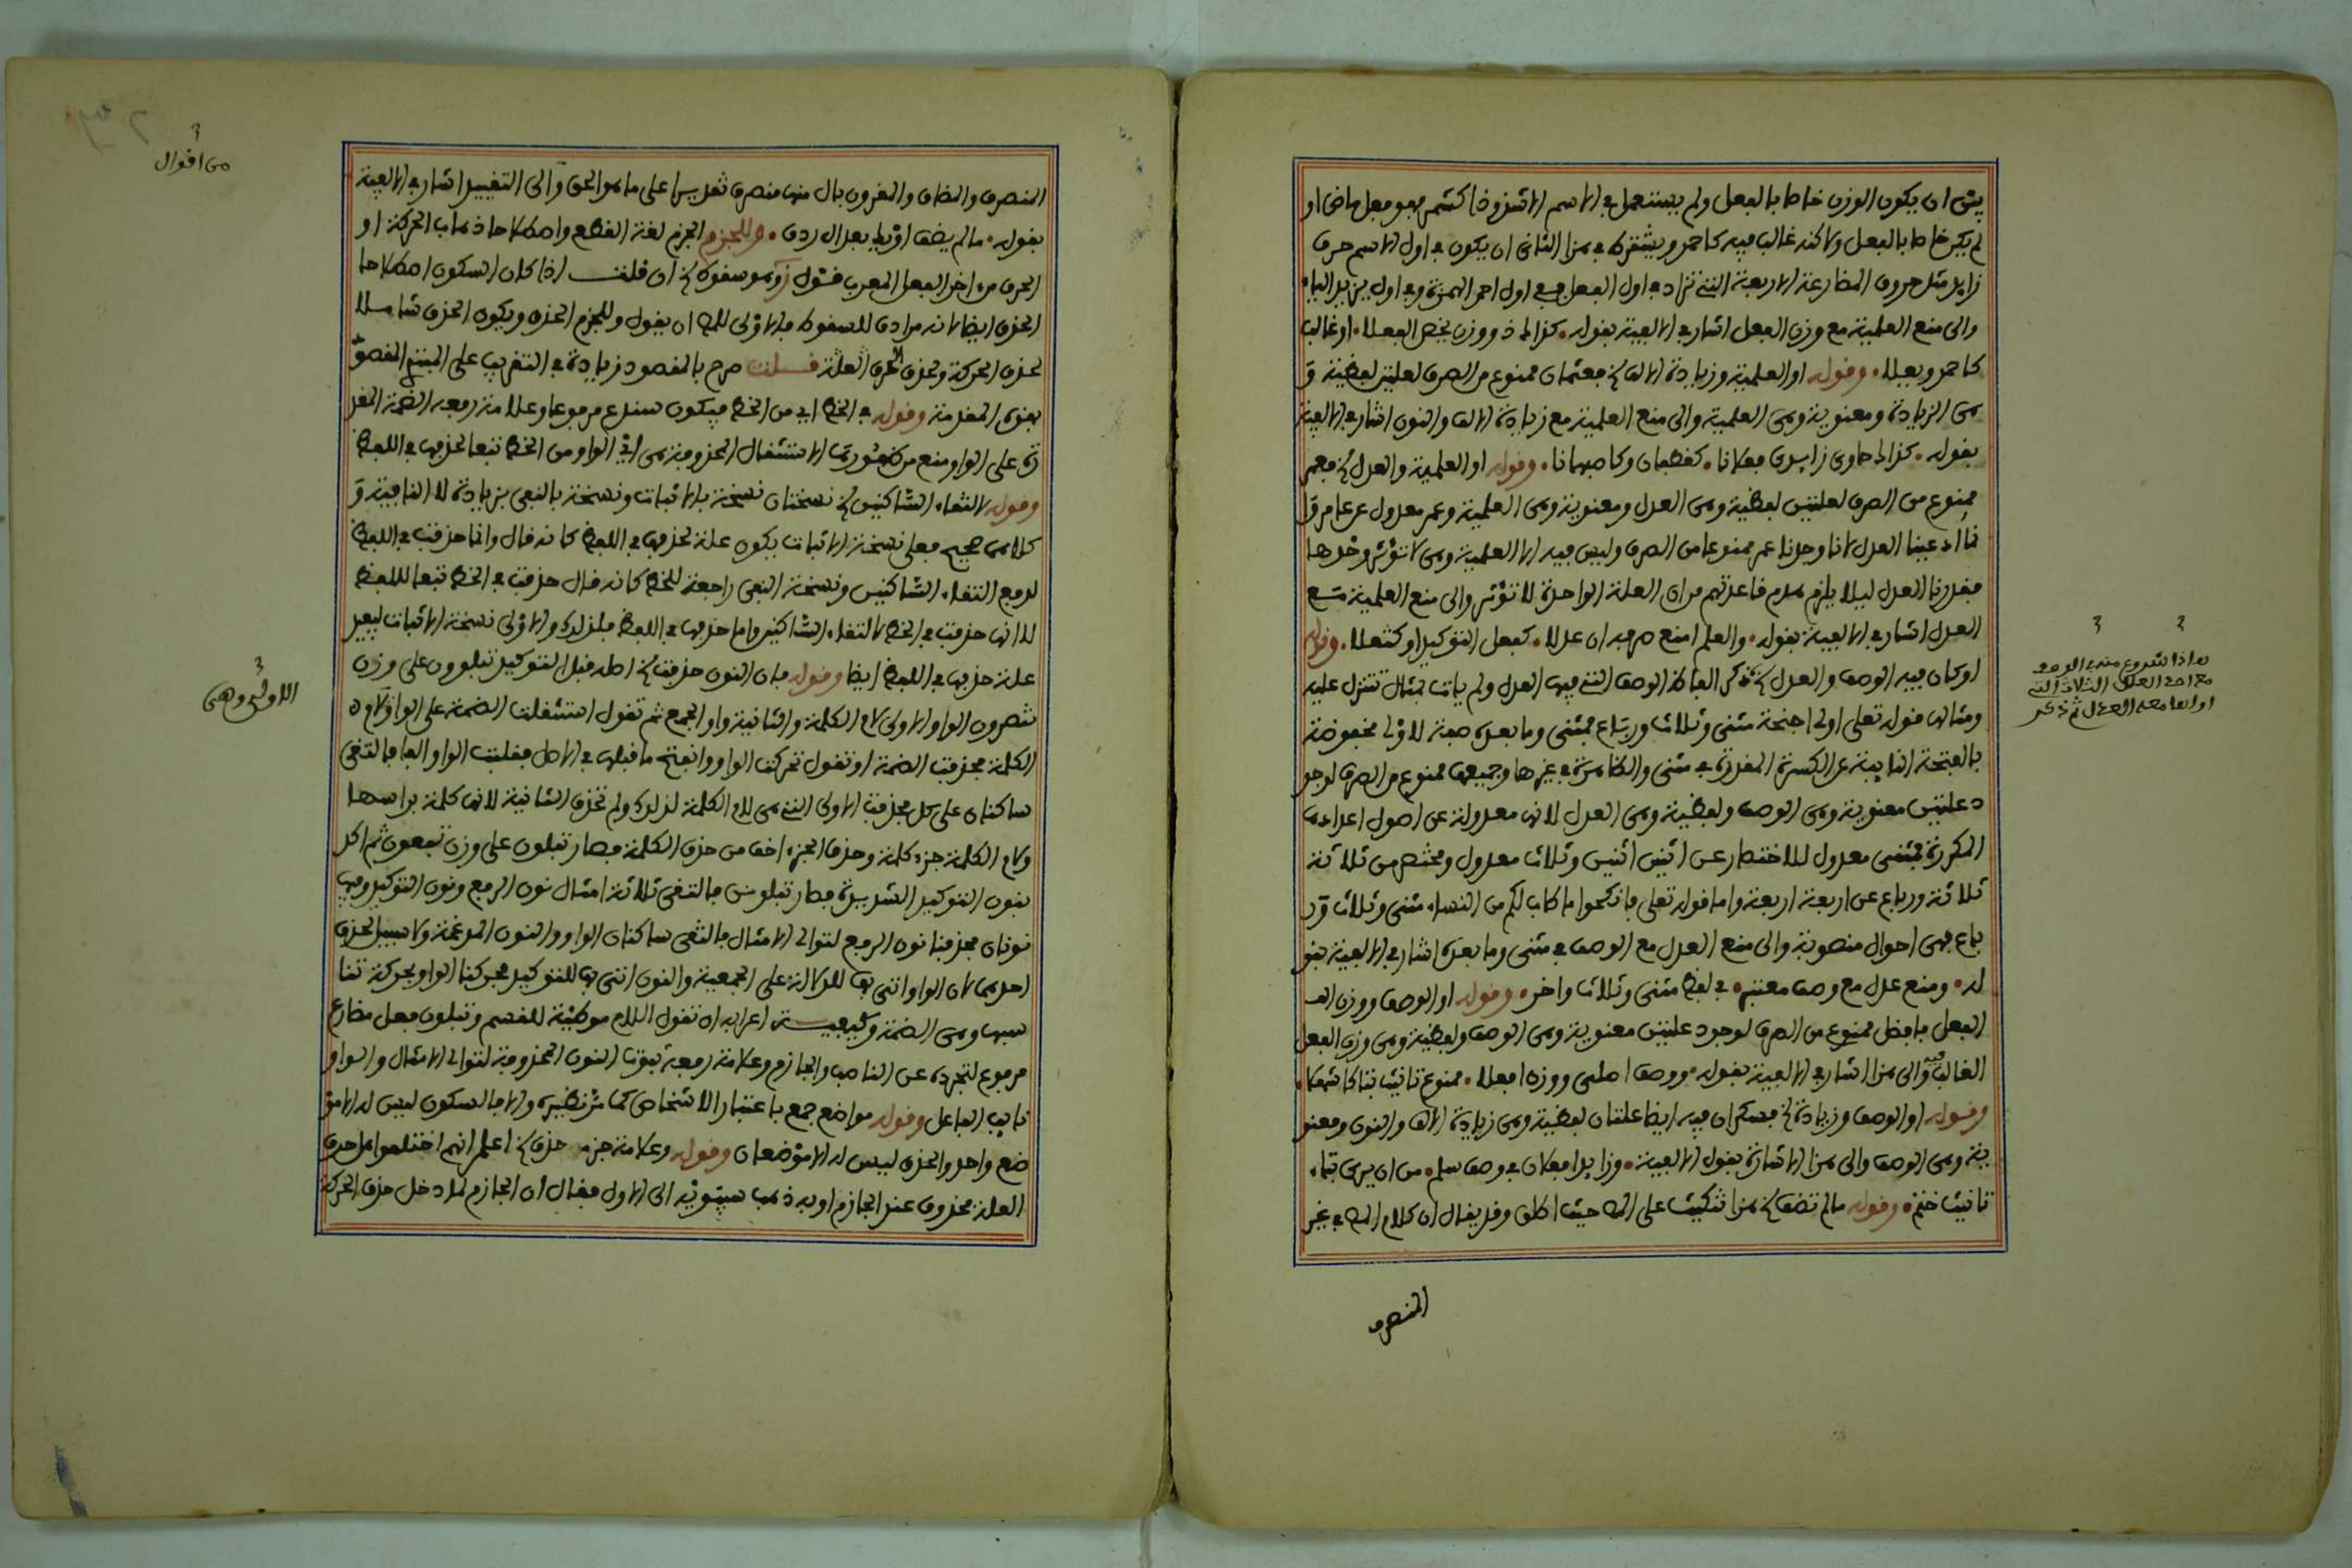 يتن ان يكون الوزن خاصا بالفعل ولم يستعمل في الاسم الا شذوذا كشمر فهو فعل ماض او
لم يكن خاصا بالفعل ولاكنه غالب فيه كاحمر ويشترط في هذا الثاني ان يكون في اول الاسم حرف
زايد مثل حروف المضارعة الاربعة التي تزاد في اول الفعل ففي اول احمر الهمزة وفي اول يزيد الياء
والى منع العلمية مع وزن الفعل اشار في الالفية بقوله كذاك ذو وزن يخص الفعلا او غالب
كاحمد ويعلا وقوله او العلمية وزيادة الالف الخ فعثمان ممنوع من الصرف لعلتين لفظية و
هي الزيادة ومعنوية وهي العلمية والى منع العلمية مع زيادة الالف والنون اشار في الالفية
بقوله كذاك حاوي زايدي فعلانا كغطفان وكاصبهانا وقوله او العلمية والعدل الخ فعمر
ممنوع من الصرف لعلتين لفظية وهي العدل ومعنوية وهي العلمية وعمر معدول عن عامر و
نما ادعينا العدل لانا وجدنا عمر ممنوعا من الصرف وليس فيه الا العلمية وهي لا تؤثر وحدها
فقدرنا العدل ليلا يلزم هدم قاعدتهم من ان العلة الواحدة لا تؤثر والى منع العلمية مع
العدل اشار في الالفية بقوله والعلم امنع صرفه ان عدلا كفعل التوكيد او كثعلا وقوله
او كان فيه الوصف والعدل الخ ذكر الفاظ الوصف التي فيها العدل ولم يات بمثال تتنزل عليه
ومثالها قوله تعلى اولي اجنحة مثنى وثلاث ورباع فمثنى وما بعده صفة لاولي مخفوضة
بالفتحة النايبة عن الكسرة المقدرة في مثنى والظاهرة في غيرها وجميعها ممنوع من الصرف لوجو
د علتين معنوية وهي الوصف ولفظية وهي العدل لانها معدولة عن اصول اعدادها
المكررة فمثنى معدول للاختصار عن اثنين اثنين وثلاث معدول ومختصر من ثلاثة
ثلاثة ورباع عن اربعة اربعة واما قوله تعلى فانكحوا ما طاب لكم من النساء مثنى وثلاث ور
باع فهي احوال منصوبة والى منع العدل مع الوصف في مثنى وما بعده اشار في الالفية بقو
له ومنع عدل مع وصف معتبر في لفظ مثنى وثلاث واخر وقوله او الوصف ووزن الفـ
الفعل فافضل ممنوع من الصرف لوجود علتين معنوية وهي الوصف ولفظية وهي وزن الفعل
الغالب فيه والى هذا اشار في الالفية بقوله ووصف اصلي ووزن افعلا ممنوع تانيث بتا كاشهلا
وقوله او الوصف وزيادة الخ فسكران فيه ايضا علتان لفظية وهي زيادة الالف والنون ومعنو
ية وهي الوصف والى هذا الاشارة بقول الالفية وزايدا فعلان في وصف سلم من ان يرى بتاء
تانيث ختم وقوله ما لم تضف الخ هذا تنكيت على المص حيث اطلق وقد يقال ان كلام المص في غير
المنصرف
هاذا شروع منه في الوصف
مع احدى العلل الثلاث التي
اولها معه العدل ثم ذكر
المنصرف والمضاف والمقرون بال منها منصرف تقديرا على ما هو الحق والى التقييد اشار في الالفية
بقوله ما لم يضف او يك بعد ال ردف وللجزم الجزم لغة القطع واصطلاحا ذهاب الحركة او
الحرف من اخر الفعل المعرب فتقول وهو سقوط الخ ان قلت اذا كان السكون اصطلاحا
الحذف ايضا لانه مرادف للسقوط فالاولى للمص ان يقول وللجزم الحذف ويكون الحذف شاملا
لحذف الحركة ولحذف الحرف العلة قلت صرح بالمقصود زيادة في التقريب على المبتدي المقصو
بهذه المقدمة وقوله في الخط اي من الخط فيكون سندع مرفوعا وعلامة رفعه الضمة المقد
رة على الواو منع من ظهورها الاستثقال المحذوفة هي اي الواو من الخط تبعا لحذفها في اللفظ
وقوله لالتقاء الساكنين الخ نسختان نسخة بالاثبات ونسخة بالنفي بزيادة لا النافية و
كلاهما صحيح فعلى نسخة الاثبات يكون علة لحذفها في اللفظ كانه قال وانما حذفت في اللفظ
لدفع التقاء الساكنين ونسخة النفي راجعة للخط كانه قال حذفت في الخط تبعا للفظ
لا انها حذفت في الخط لالتقاء الساكنين واما حذفها في اللفظ فلذلك والاولى نسخة الاثبات ليفيد
علة حذفها في اللفظ ايضا وقوله فان النون حذفت الخ اصله قبل التوكيد تبلوون على وزن
تنصرون الواو الاولى لام الكلمة والثانية واو الجمع ثم تقول استثقلت الضمة على الواو لام
الكلمة فحذفت الضمة او تقول تحركت الواو وانفتح ما قبلها في الاصل فقلبت الواو الفا فالتقى
ساكنان على كل فحذفت الاولى التي هي لام الكلمة لذلك ولم تحذف الثانية لانها كلمة براسها
ولام الكلمة جزء كلمة وحذف الجزء اخف من حذف الكلمة فصار تبلون على وزن تفعون ثم اكد
بنون التوكيد الشديدة فصار تبلونن فالتقى ثلاثة امثال نون الرفع ونون التوكيد وفيها
نونان فحذفنا نون الرفع لتوالي الامثال فالتقى ساكنان الواو والنون المدغمة ولا سبيل لحذف
احدهما لان الواو اتي بها للدلالة على الجمعية والنون اتي بها للتوكيد فحركنا الواو بحركة تنا
سبها وهي الضمة وكيفية اعرابه ان تقول اللام موطئة للقسم وتبلون فعل مضارع
مرفوع لتجرده عن الناصب والجازم وعلامة رفعه ثبوت النون المحذوفة لتوالي الامثال والواو
نايب الفاعل وقوله مواضع جمع باعتبار الاشخاص كما مر نظيره والا فالسكون ليس له الا مو
ضع واحد والحذف ليس له الا موضعان وقوله وعلامة جزمه حذف الخ اعلم انهم اختلفوا هل حرف
العلة محذوف عند الجازم او به ذهب سيبويه الى الاول فقال ان الجازم لما دخل حذف الحركة
من اقوال
الاولى وهي